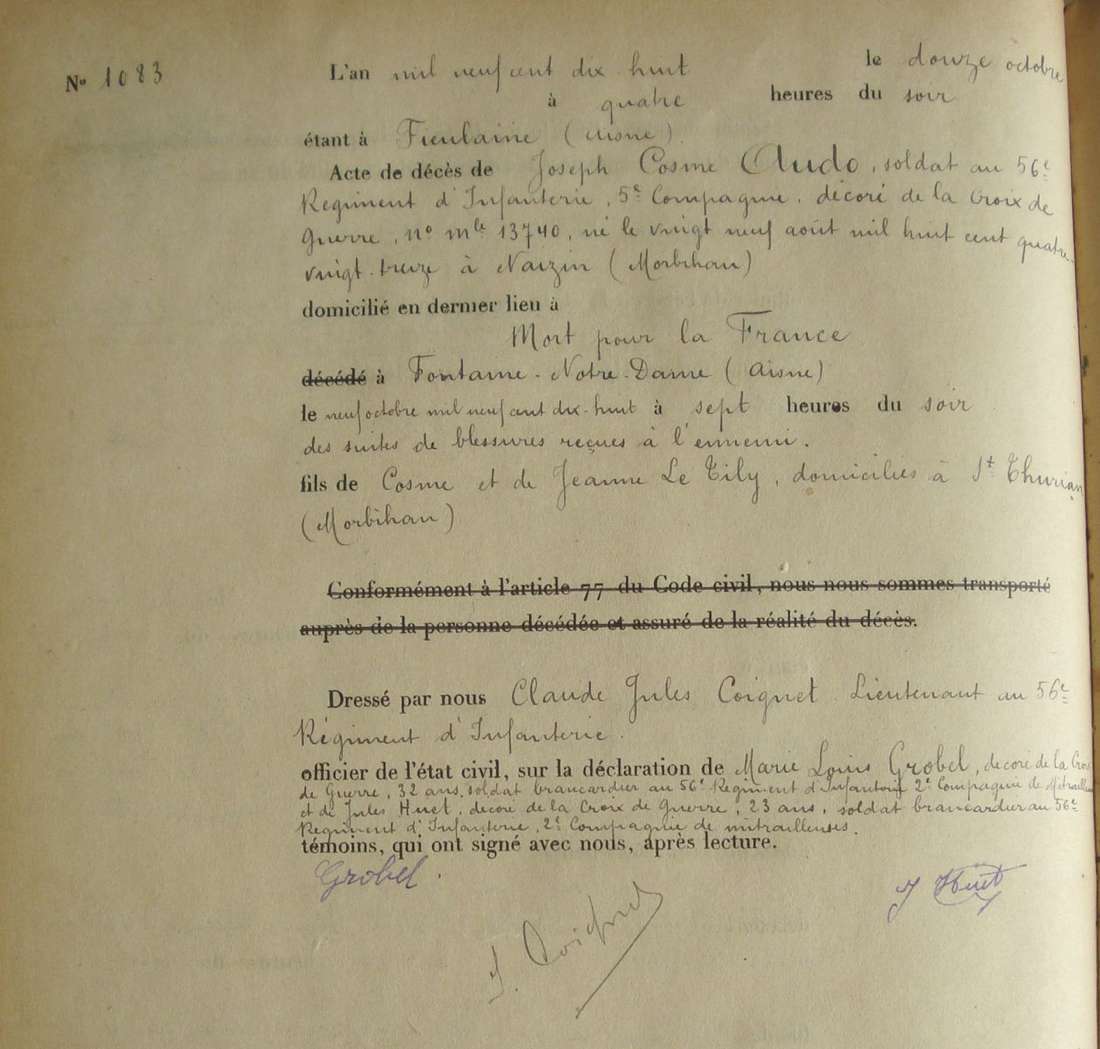 N° 1083
L'an mil neuf cent dix huit le douze octobre
à quatre heures du soir
étant à Fieulaine (Aisne)
Acte de décès de Joseph Cosme Audo, soldat au 56e
Régiment d'Infanterie, 5e Compagnie, décoré de la Croix de
Guerre, n° mle 13740, né le vingt neuf août mil huit cent quatre
vingt-treize à Naizin (Morbihan)
domicilié en dernier lieu à
Mort pour la France
décédé à Fontaine-Notre-Dame (Aisne)
le neuf octobre mil neuf cent dix-huit à sept heures du soir
des suites de blessures reçues à l'ennemi.
fils de Cosme et de Jeanne Le Tily, domiciliés à St Thurian
(Morbihan)
Conformément à l'article 77 du Code civil, nous nous sommes transporté
auprès de la personne décédée et assuré de la réalité du décès.
Dressé par nous Claude Jules Coignet Lieutenant au 56e
Régiment d'Infanterie.
officier de l'état civil, sur la déclaration de Marie Louis Grobel, décoré de la Croix
de Guerre, 32 ans, soldat brancardier au 56e Régiment d'Infanterie 2e Compagnie de Mitrailleuses
et de Jules Huet, décoré de la Croix de Guerre, 23 ans, soldat brancardier au 56e
Régiment d'Infanterie, 2e Compagnie de mitrailleuses.
témoins, qui ont signé avec nous, après lecture.
Grobel. J Huet
J. Coignet